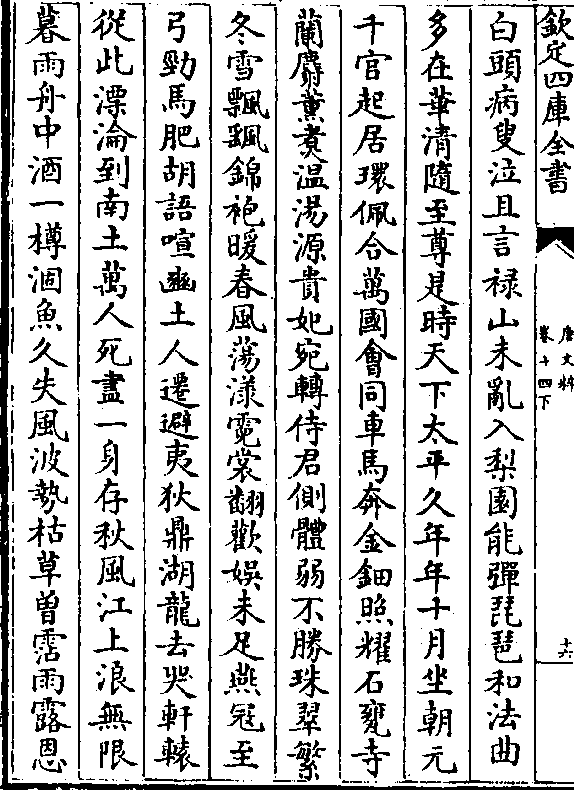 欽定四庫全書
唐文粹
卷十四下
十六
白頭病叟泣且言禄山未亂入梨園能彈琵琶和法曲
多在華清隨至尊是時天下太平久年年十月坐朝元
千官起居環佩合萬國會同車馬奔金鈿照耀石甕寺
蘭麝薫煑温湯源貴妃宛轉侍君側體弱不勝珠翠繁
冬雪飄飄錦袍暖春風蕩漾霓裳翻歡娛未足燕冦至
弓勁馬肥胡語喧豳土人遷避夷狄鼎湖龍去哭軒轅
從此漂淪到南土萬人死盡一身存秋風江上浪無限
暮雨舟中酒一樽涸魚久失風波勢枯草曽霑雨露恩